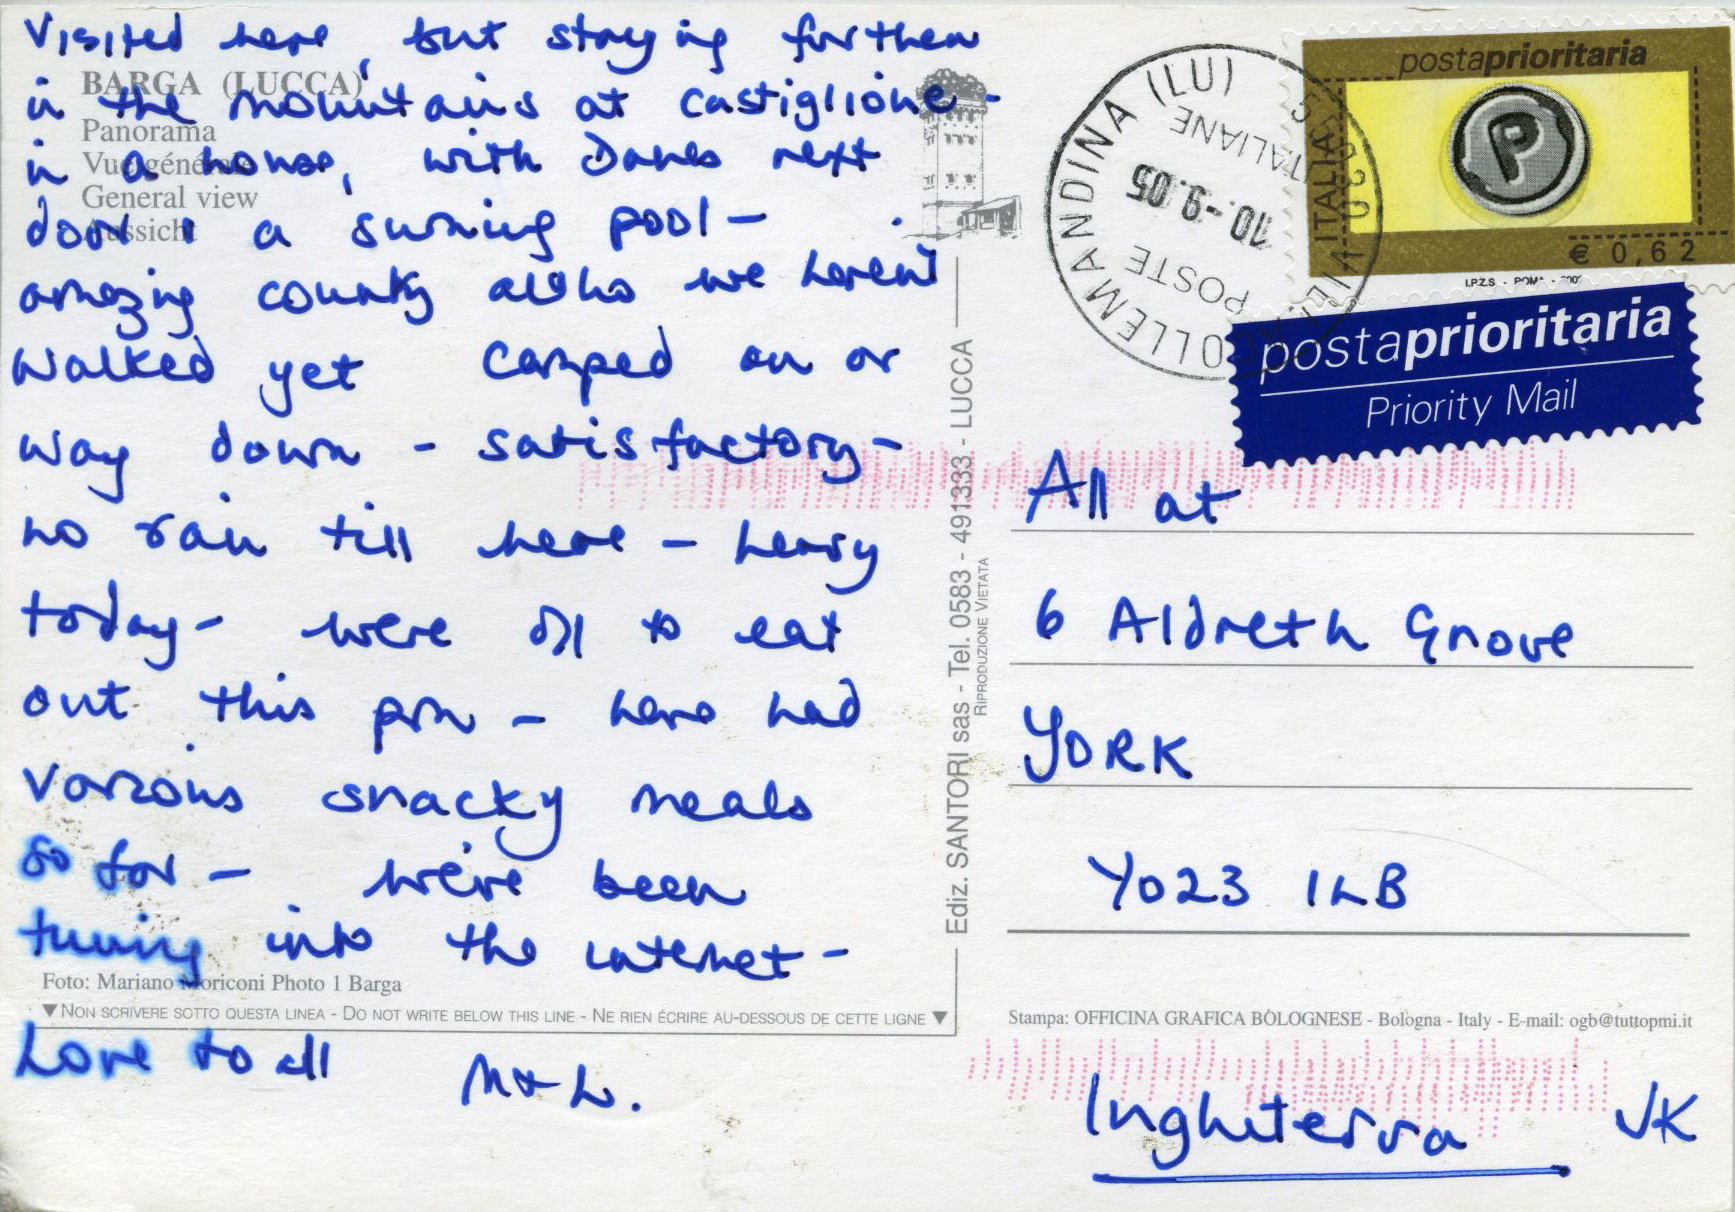 Visited here, but staying further
in the mountains at Castiglione -
in a house, with Danes next
door & a swimming pool -
amazing country altho we haven't
walked yet Camped on or
way down - satisfactory -
no rain till here - heavy
today - were off to eat
out this pm - have had
various snacky meals
so far - we've been
tuning into the internet -
Love to all M & L.
BARGA (LUCCA)
Panorama
Vue générale
General view
Aussicht
Foto: Mariano Moriconi Photo 1 Barga
▼ NON SCRIVERE SOTTO QUESTA LINEA - DO NOT WRITE BELOW THIS LINE - NE RIEN ÉCRIRE AU-DESSOUS DE CETTE LIGNE ▼
Ediz. SANTORI sas - Tel. 0583 - 491333 - LUCCA
RIPRODUZIONE VIETATA
(LU)
POSTE ITALIANE
10.-9.05
postaprioritaria
P
ITALIA
€ 0,62
I.P.Z.S. - ROMA -
postaprioritaria
Priority Mail
All at
6 Aldreth Grove
YORK
YO23 1LB
Stampa: OFFICINA GRAFICA BOLOGNESE - Bologna - Italy - E-mail: ogb@tuttopmi.it
Inghiterra UK